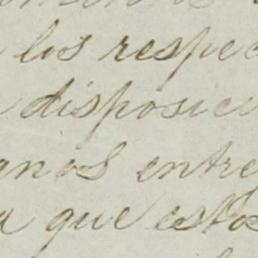 los respec
disposici
anos entre
a que estos